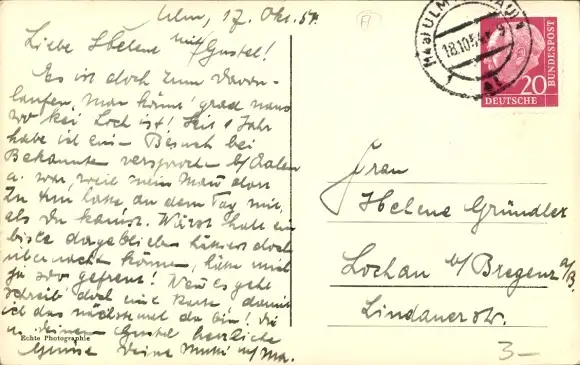 Ulm, 17. Okt. 54
Liebe Helene mit Gustel!
Es ist doch zum Davon-
laufen, man könnt' grad naus
wo kei Loch ist! Seit 1 Jahr
habe ich ein Besuch bei
Bekannten versproch b/Aalen
u. war, weil mein Mann dort
zu tun hatte an dem Tag mit,
als du kamst. Wärst halt ein
bissle dageblieben hättest doch
übernachte könne, hätte mich
ja so gefreut! Wenn es geht
schreib doch eine Karte damit
ich das nächste mal da bin! Dir
u. deinem Gustel herzliche
Grüsse Deine
Echte Photographie
ULM
18.10.54
20
DEUTSCHE BUNDESPOST
Frau
Helene Gründler
Lochau b/Bregenz a/B.
Lindauerstr.
3-